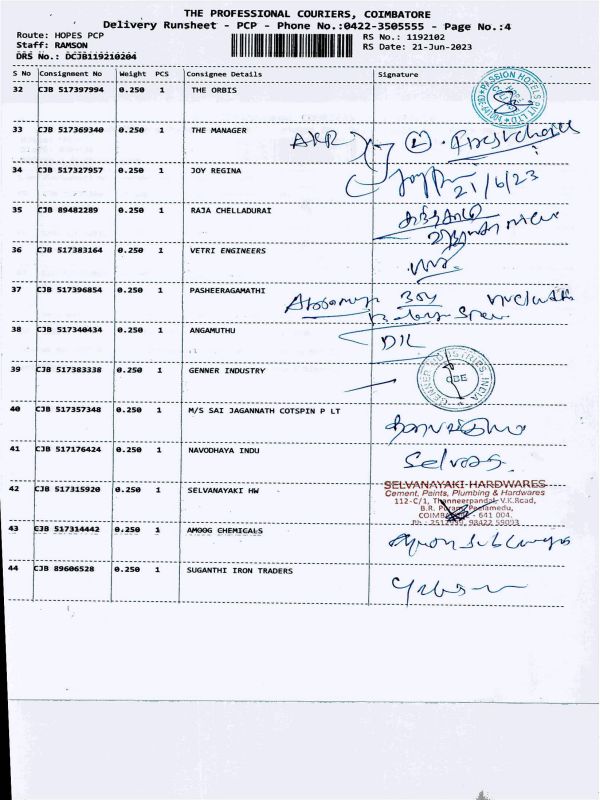 THE PROFESSIONAL COURIERS, COIMBATORE
Delivery Runsheet - PCP - Phone No.:0422-3505555 - Page No.:4
Route: HOPES PCP RS No.: 1192102
Staff: RAMSON RS Date: 21-Jun-2023
DRS No.: DCJB119210204
S No Consignment No Weight PCS Consignee Details Signature
32 CJB 517397994 0.250 1 THE ORBIS
33 CJB 517369340 0.250 1 THE MANAGER
34 CJB 517327957 0.250 1 JOY REGINA
21/6/23
35 CJB 89482289 0.250 1 RAJA CHELLADURAI
36 CJB 517383164 0.250 1 VETRI ENGINEERS
37 CJB 517396854 0.250 1 PASHEERAGAMATHI
38 CJB 517340434 0.250 1 ANGAMUTHU
39 CJB 517383338 0.250 1 GENNER INDUSTRY
40 CJB 517357348 0.250 1 M/S SAI JAGANNATH COTSPIN P LT
41 CJB 517176424 0.250 1 NAVODHAYA INDU
42 CJB 517315920 0.250 1 SELVANAYAKI HW
SELVANAYAKI HARDWARES
Cement, Paints, Plumbing & Hardwares
112-C/1, Thanneerpandal, V.K.Road,
B.R. Puram, Peelamedu,
641 004.
43 CJB 517314442 0.250 1 AMOOG CHEMICALS
44 CJB 89606528 0.250 1 SUGANTHI IRON TRADERS